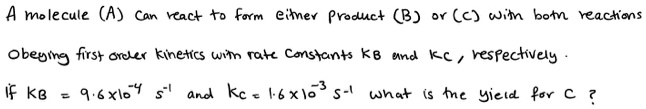 A molecule (A) can react to form either product (B) or (C) with both reactions
obeying first order kinetics with rate constants KB and KC, respectively.
If KB = 9.6x10⁻⁴ s⁻¹ and KC = 1.6x10⁻³ s-1 what is the yield for C ?